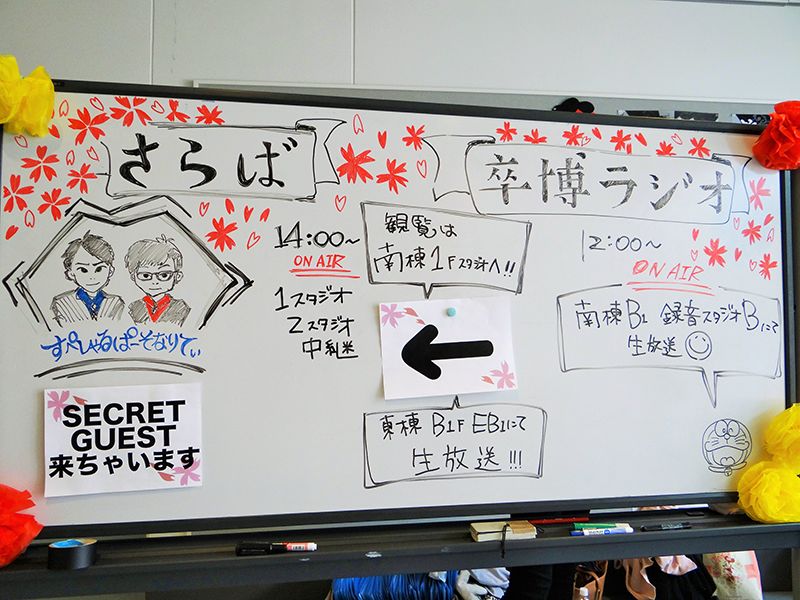 さらば
卒博ラジオ
14:00~
ON AIR
1スタジオ
2スタジオ
中継
観覧は
南棟1Fスタジオへ!!
東棟 B1F EB1にて
生放送!!!
12:00~
ON AIR
南棟B1 録音スタジオBにて
生放送
すぺしゃるぱーそなりてぃ
SECRET
GUEST
来ちゃいます